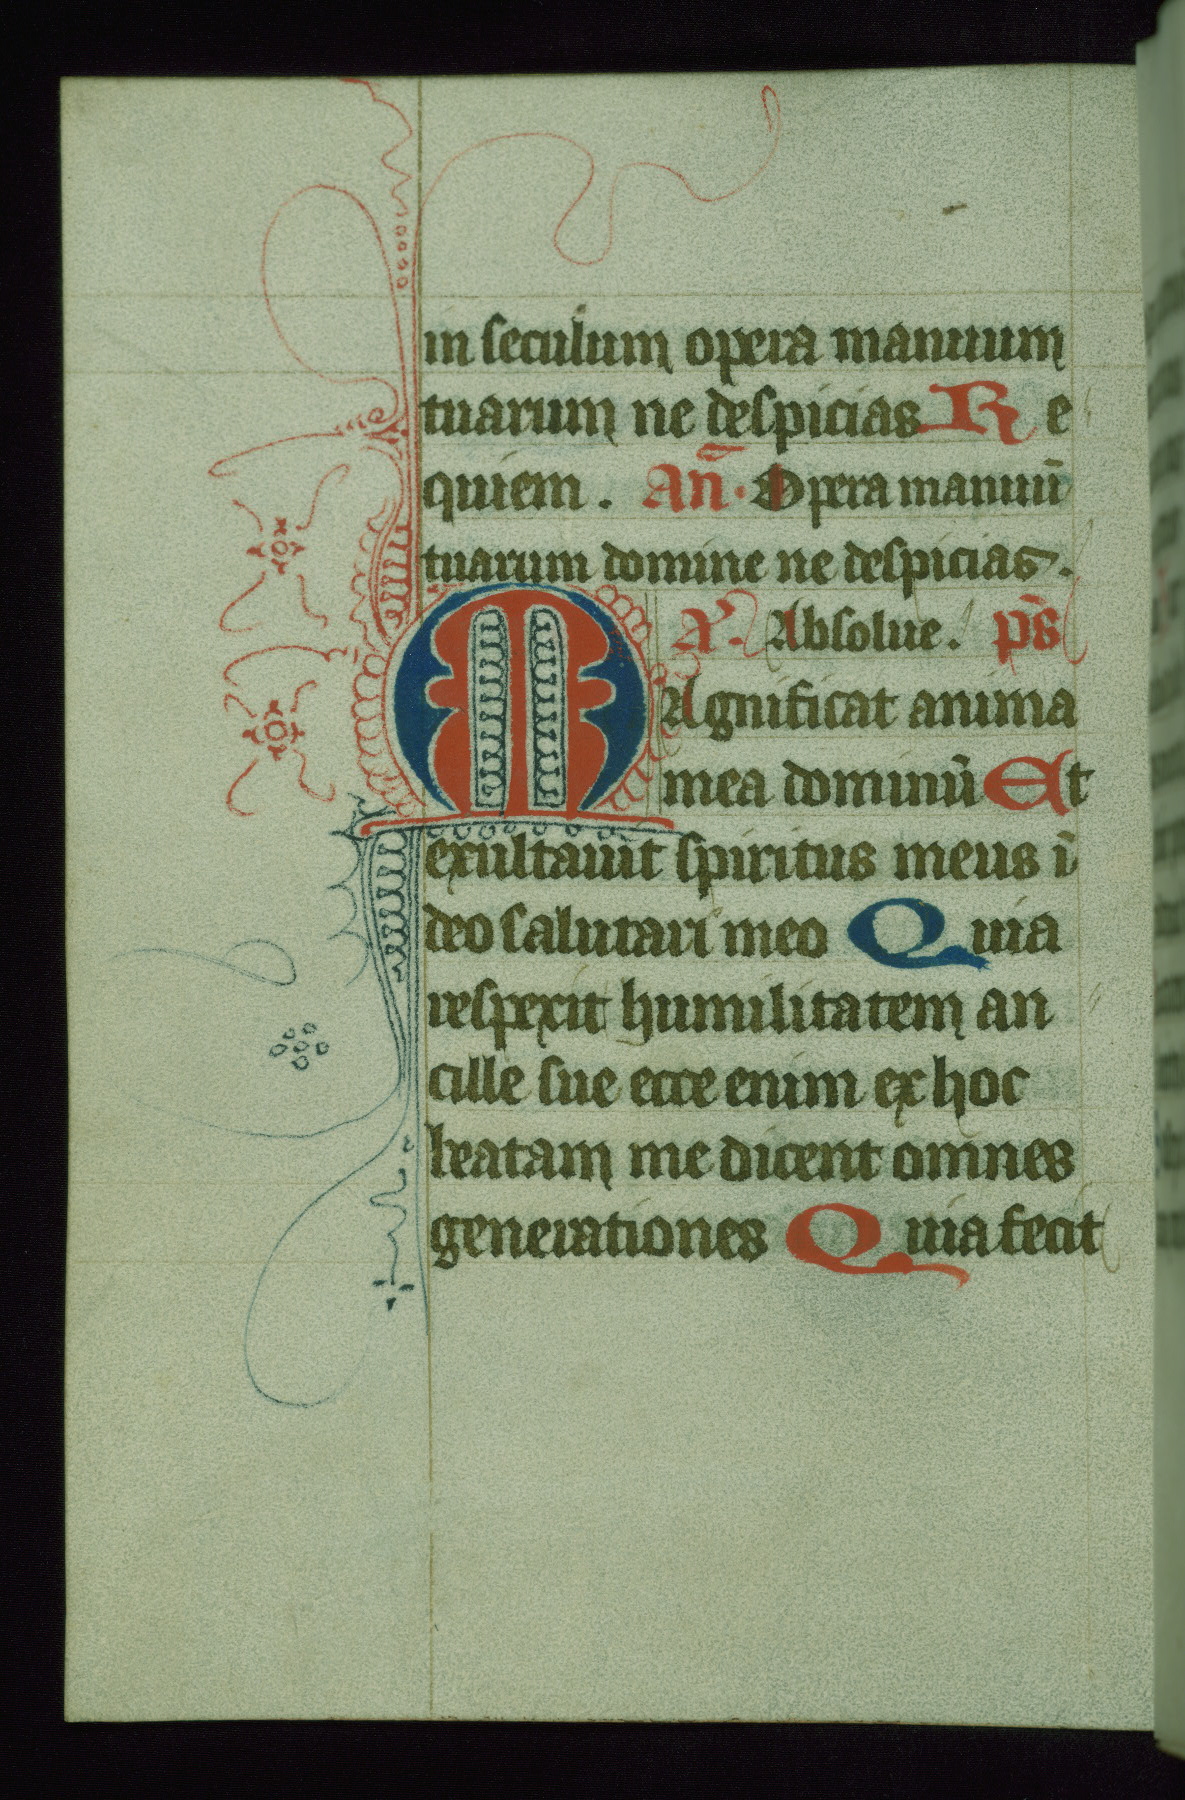 in seculum opera manuum
tuarum ne despicias Re
quiem. An̄. Opera manuū
tuarum domine ne despicias.
A'. Absolue. ps̄
MAgnificat anima
mea dominū Et
exultauit spiritus meus ī
deo salutari meo Quia
respexit humilitatem an
cille sue ecce enim ex hoc
beatam me dicent omnes
generationes Quia fecit